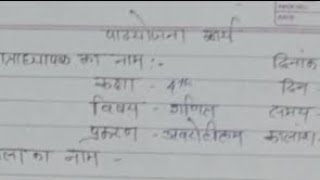 पाठयोजना कार्य
त्राध्यापक का नाम :- दिनांक
कक्षा - 4th दिन
विषय - गणित समय -
प्रकरण - अवरोहीक्रम कालांश -
ला का नाम -